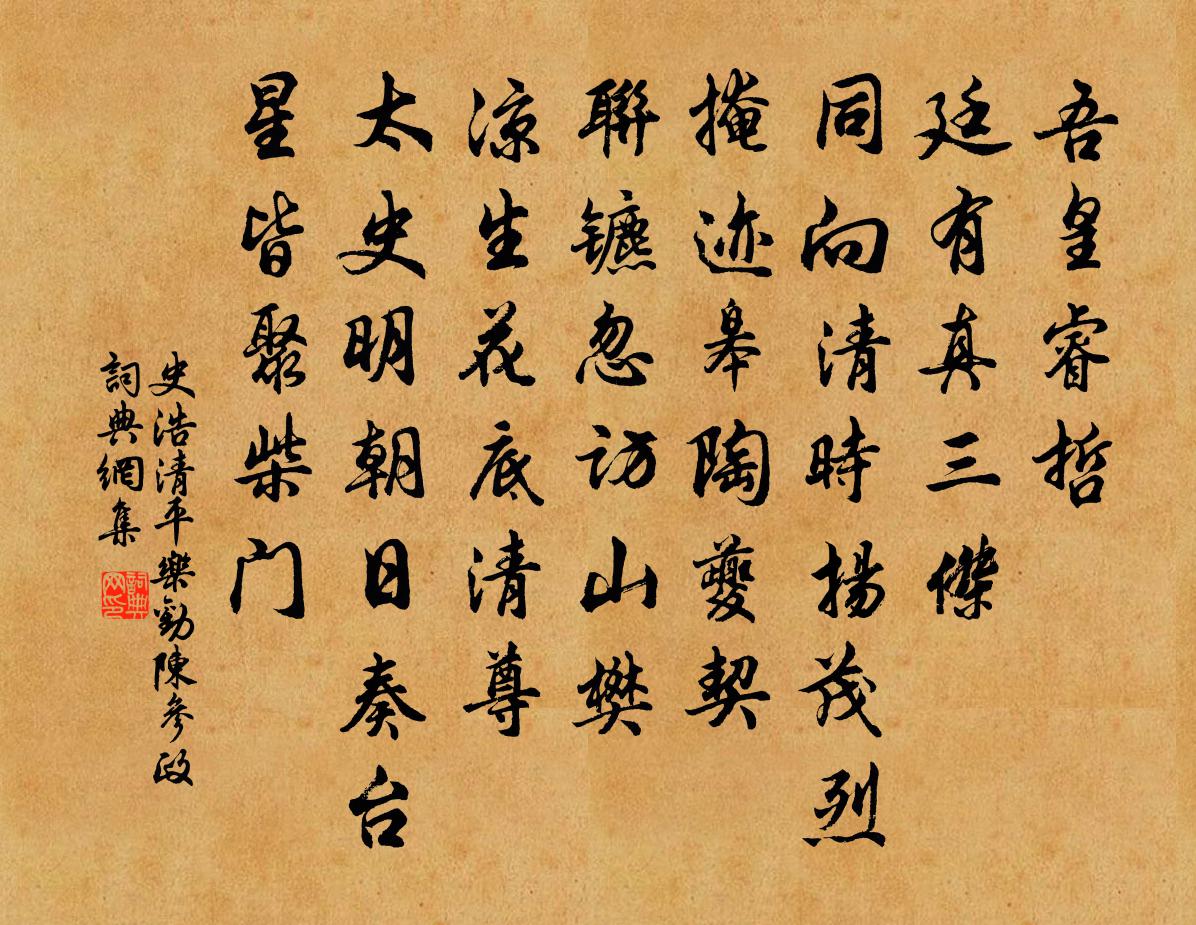 吾皇睿哲
廷有真三傑
同向清時揚茂烈
掩迹皋陶夔契
聯镳忽访山樊
涼生花底清尊
太史明朝日奏台
星皆聚柴门
史浩清平樂勸陳參政
詞典網集
詞典网印